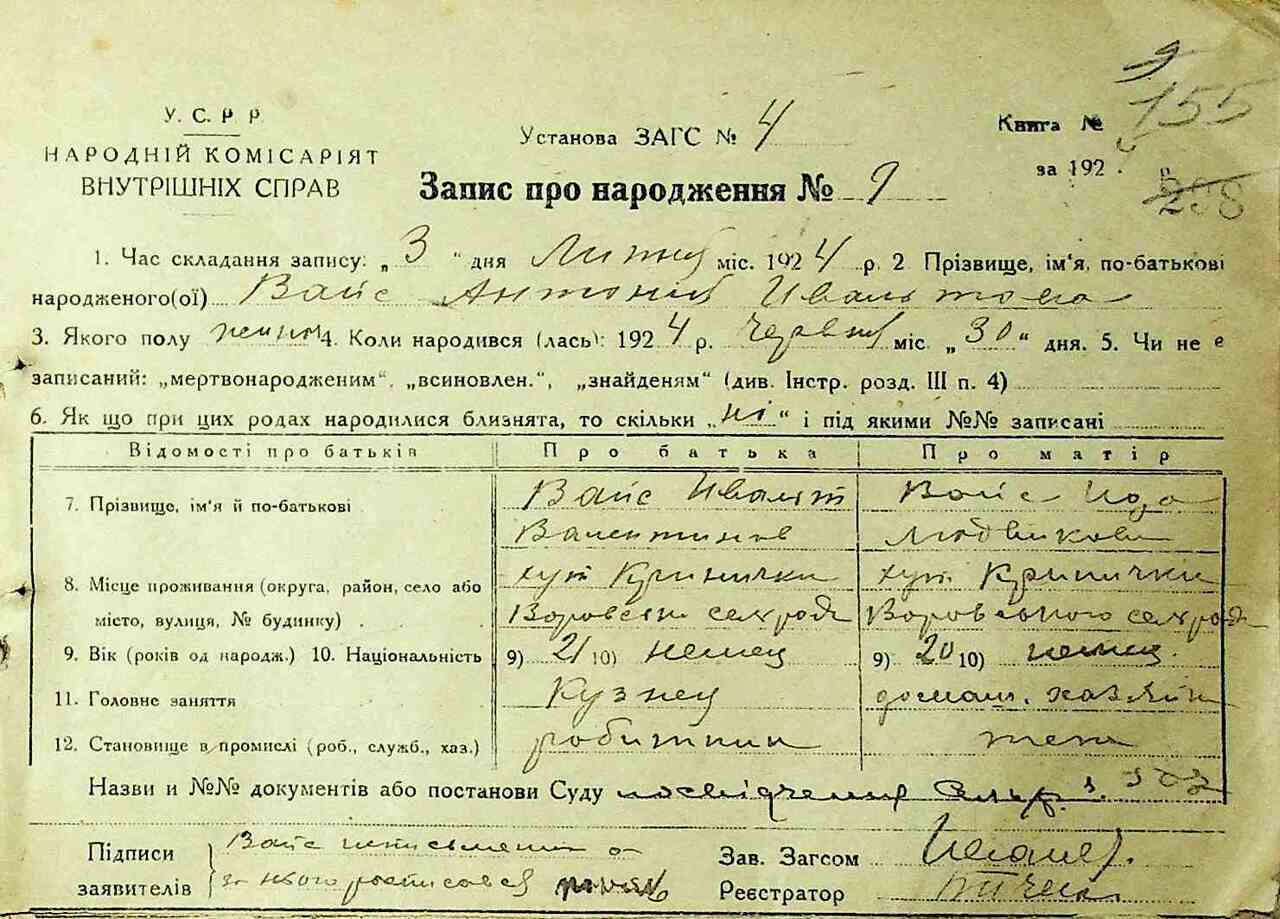 155
У. С. Р Р
НАРОДНІЙ КОМІСАРІЯТ
ВНУТРІШНІХ СПРАВ
Установа ЗАГС № 4
Книга №
за 1924
298
Запис про народження № 9
1. Час складання запису: „ 3 " дня міс. 1924 р. 2 Прізвище, ім'я, по-батькові
народженого(ої) Вайс
3. Якого полу 4. Коли народився (лась): 1924 р. Червня міс. „ 30 " дня. 5. Чи не є
записаний: „мертвонародженим", „всиновлен.", „знайденям" (див. Інстр. розд. III п. 4)
6. Як що при цих родах народилися близнята, то скільки „ ні " і під якими №№ записані
Відомості про батьків Про батька Про матір
7. Прізвище, ім'я й по-батькові Вайс Ивальт Вайс Ида
Валентинов Людвиковн
8. Місце проживання (округа, район, село або хут Кринички хут Кринички
місто, вулиця, № будинку)
9. Вік (років од народж.) 10. Національність 9) 21 10) немец 9) 20 10) немец
11. Головне заняття Кузнец домаш. хазяйн
12. Становище в промислі (роб., служб., хаз.) робитник
Назви и №№ документів або постанови Суду посвідчення
Підписи Вайс
заявителів за нього росписався
Зав. Загсом
Реєстратор